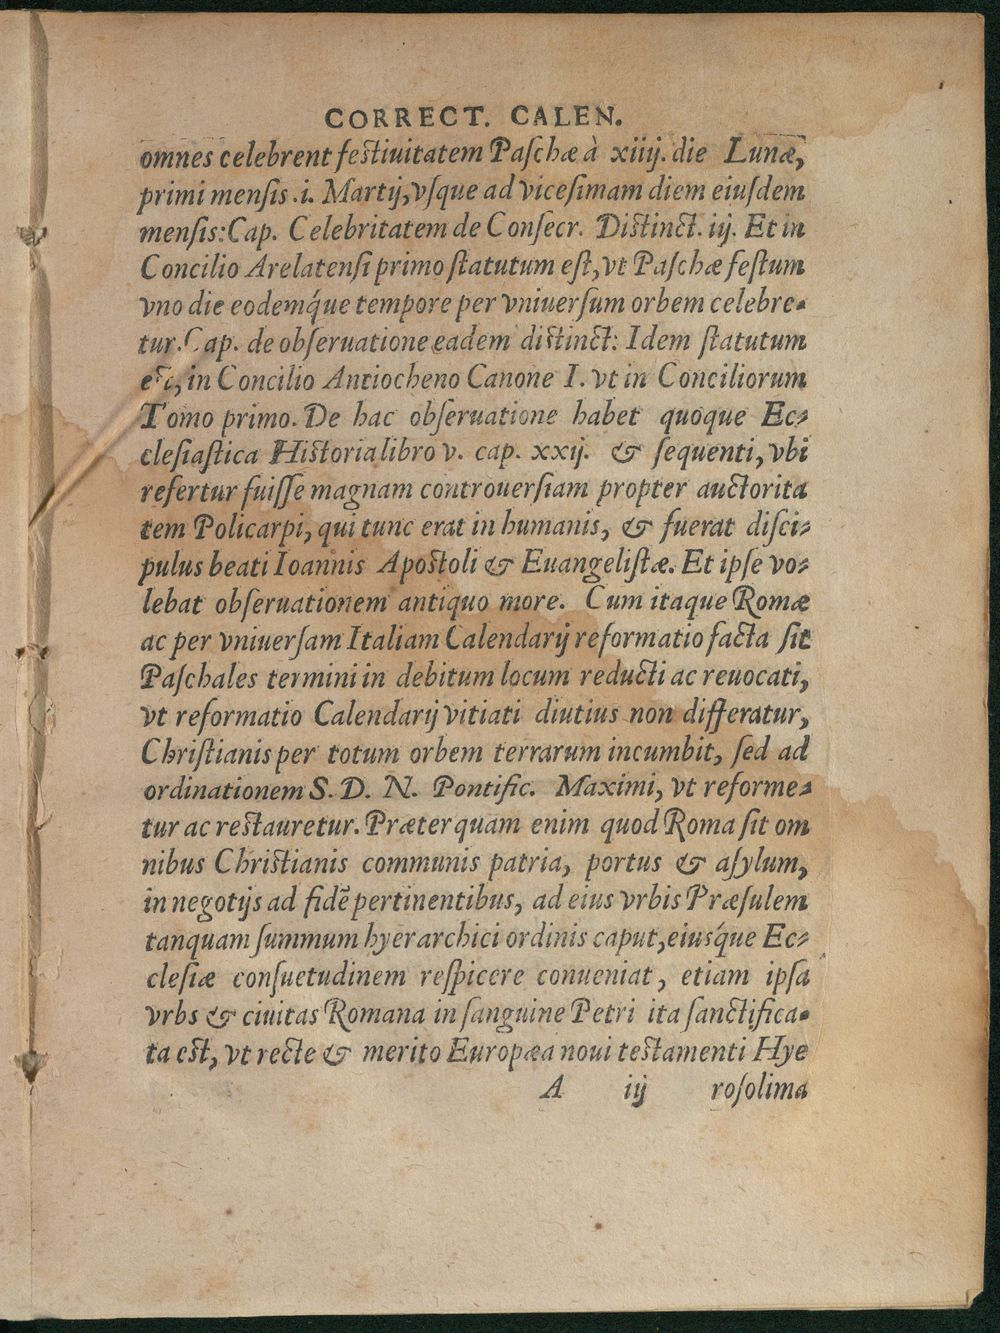 CORRECT. CALEN.
omnes celebrent festiuitatem Paschæ à xiiij. die Lunæ,
primi mensis .i. Martij, vsque ad vicesimam diem eiusdem
mensis: Cap. Celebritatem de Consecr. Distinct. iij. Et in
Concilio Arelatensi primo statutum est, vt Paschæ festum
vno die eodemq́ue tempore per vniuersum orbem celebre-
tur. Cap. de obseruatione eadem distinct: Idem statutum
est, in Concilio Antiocheno Canone I. vt in Conciliorum
Tomo primo. De hac obseruatione habet quoque Ec-
clesiastica Historia libro v. cap. xxij. & sequenti, vbi
refertur fuisse magnam controuersiam propter auctorita
tem Policarpi, qui tunc erat in humanis, & fuerat disci-
pulus beati Ioannis Apostoli & Euangelistæ. Et ipse vo-
lebat obseruationem antiquo more. Cum itaque Romæ
ac per vniuersam Italiam Calendarij reformatio facta sit
Paschales termini in debitum locum reducti ac reuocati,
vt reformatio Calendarij vitiati diutius non differatur,
Christianis per totum orbem terrarum incumbit, sed ad
ordinationem S. D. N. Pontific. Maximi, vt reforme-
tur ac restauretur. Præterquam enim quod Roma sit om
nibus Christianis communis patria, portus & asylum,
in negotijs ad fidē pertinentibus, ad eius vrbis Præsulem
tanquam summum hyerarchici ordinis caput, eiusq́ue Ec-
clesiæ consuetudinem respicere conueniat, etiam ipsa
vrbs & ciuitas Romana in sanguine Petri ita sanctifica-
ta est, vt recte & merito Europæa noui testamenti Hye
A iij rosolima